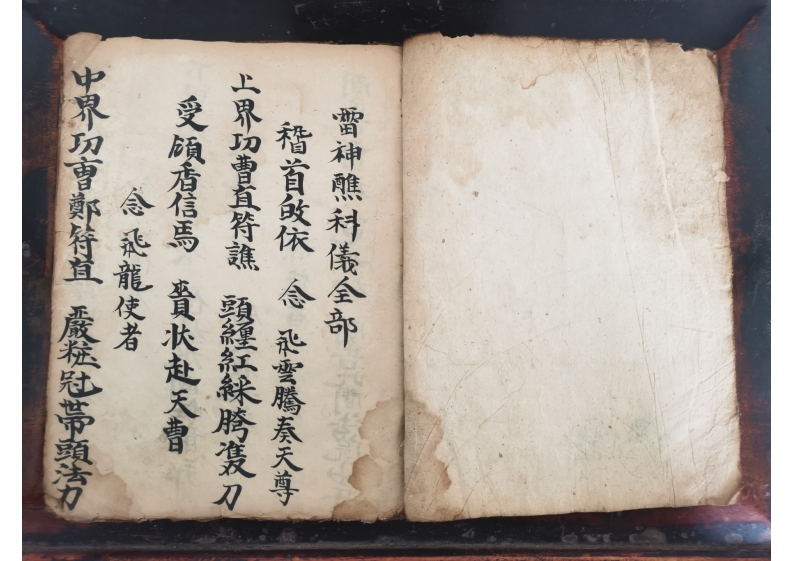 雷神醮科儀全部
稽首皈依　念　飛雲騰奏天尊
上界功曹直符譙　頭纏紅綵胯雙刀
受領香信馬　賫状赴天曹
念　飛龍使者
中界功曹鄭符直　嚴粧冠帶頭法力